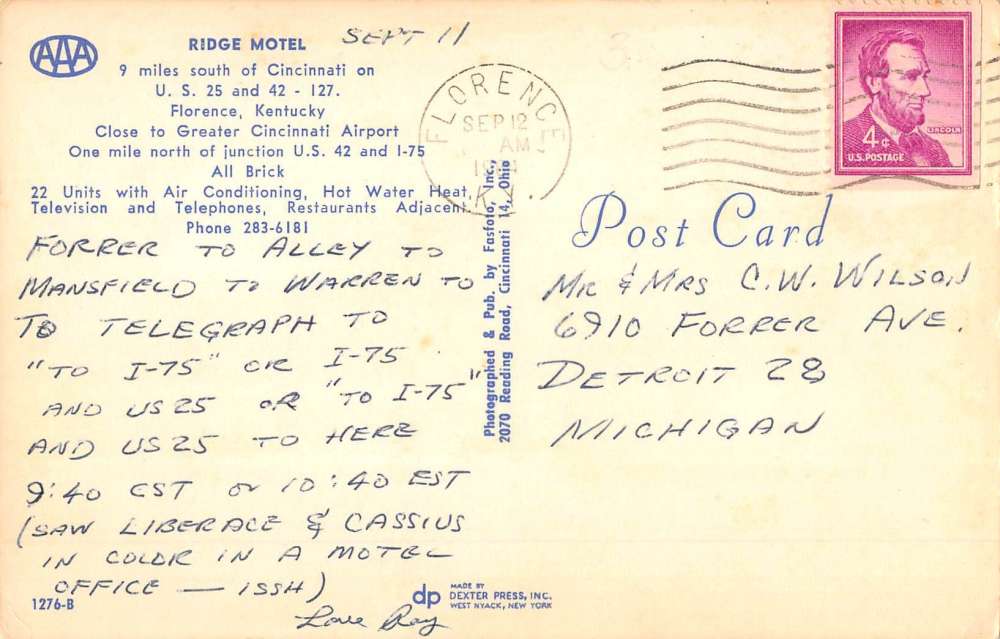 AAA
RIDGE MOTEL
9 miles south of Cincinnati on
U. S. 25 and 42 - 127.
Florence, Kentucky
Close to Greater Cincinnati Airport
One mile north of junction U.S. 42 and I-75
All Brick
22 Units with Air Conditioning, Hot Water Heat,
Television and Telephones, Restaurants Adjacent.
Phone 283-6181
SEPT 11
FORRER TO ALLEY TO
MANSFIELD TO WARREN TO
TO TELEGRAPH TO
"TO I-75" OR I-75
AND US25 OR "TO I-75"
AND US25 TO HERE
9:40 CST OR 10:40 EST
(SAW LIBERACE & CASSIUS
IN COLOR IN A MOTEL
OFFICE — ISSH)
Love Ray
1276-B
Photographed & Pub. by Fasfoto, Inc.,
2070 Reading Road, Cincinnati 14, Ohio
dp
MADE BY
DEXTER PRESS, INC.
WEST NYACK, NEW YORK
FLORENCE
SEP 12
AM
KY.
LINCOLN
4¢
U.S. POSTAGE
Post Card
MR & MRS C.W. WILSON
6910 FORRER AVE.
DETROIT 28
MICHIGAN